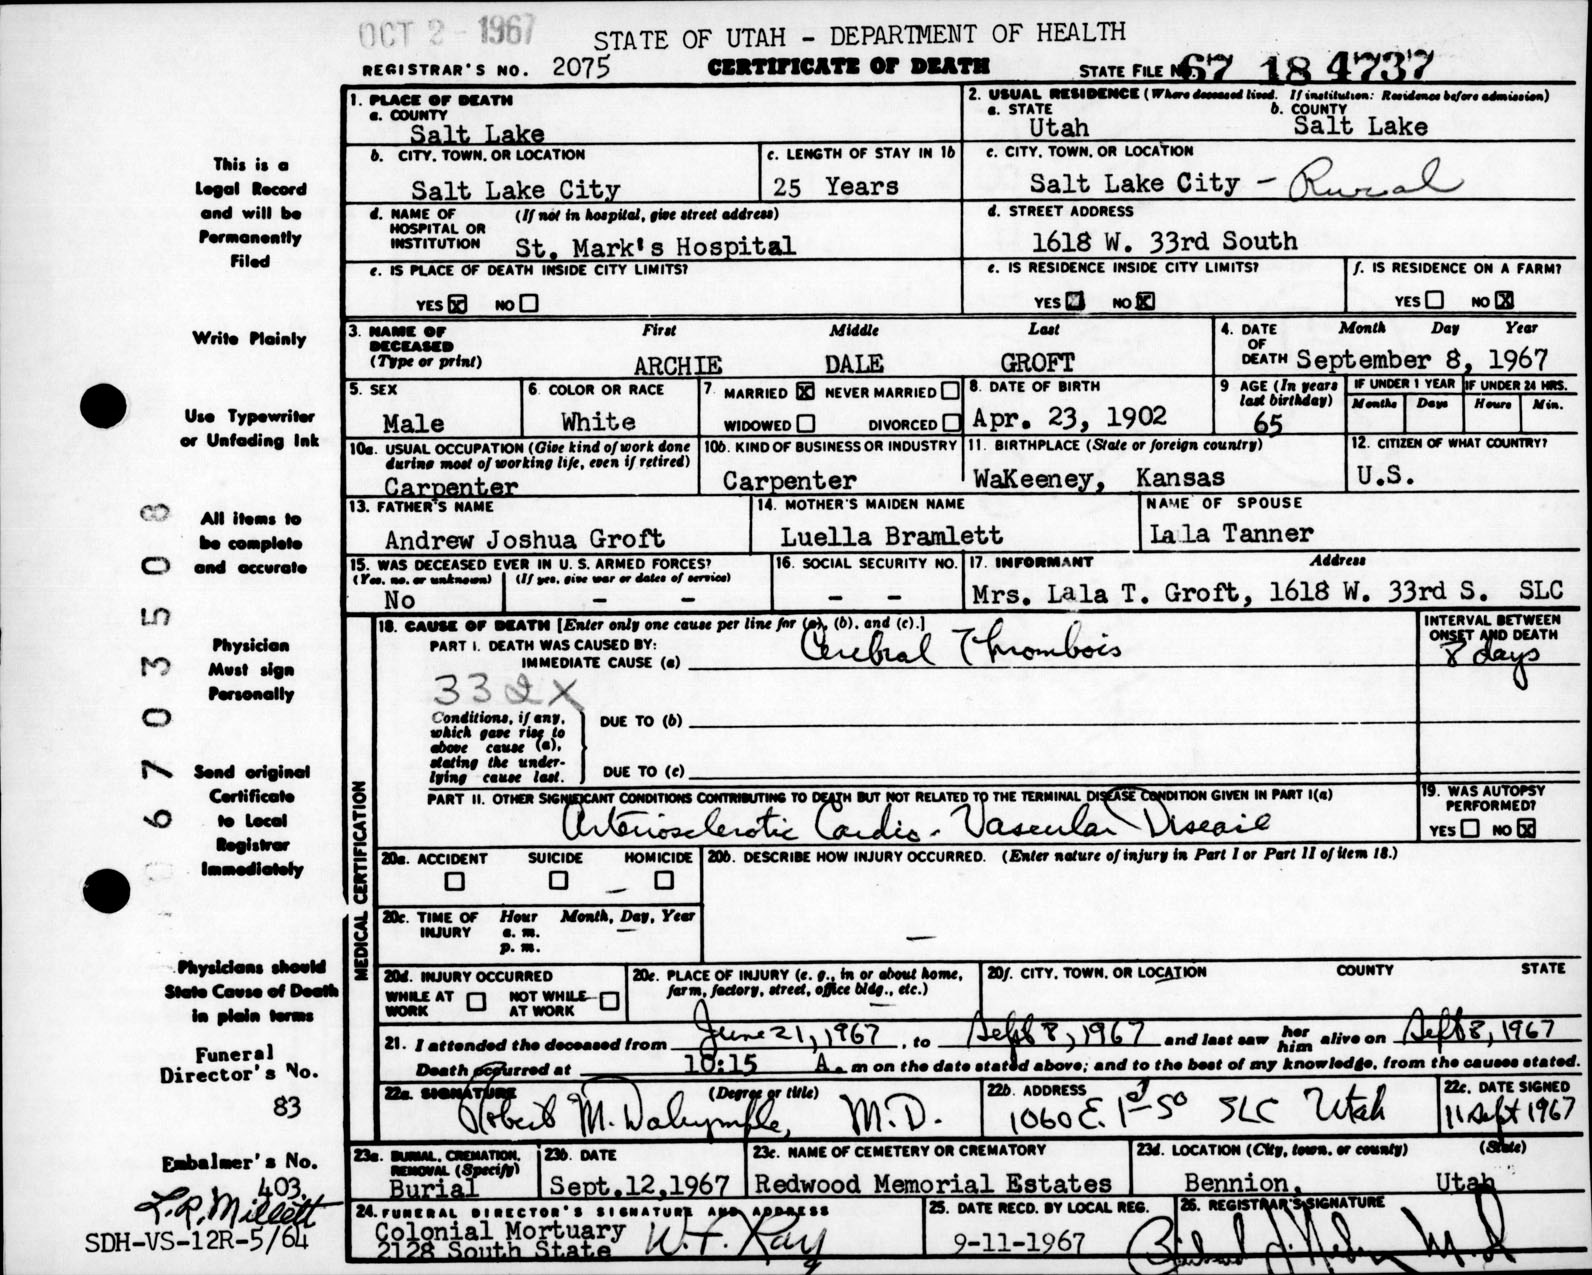 OCT 2 - 1967
STATE OF UTAH - DEPARTMENT OF HEALTH
REGISTRAR'S NO. 2075 CERTIFICATE OF DEATH STATE FILE NO. 67 18 4737
This is a
Legal Record
and will be
Permanently
Filed
Write Plainly
Use Typewriter
or Unfading Ink
All items to
be complete
and accurate
Physician
Must sign
Personally
Send original
Certificate
to Local
Registrar
Immediately
Physicians should
State Cause of Death
in plain terms
Funeral
Director's No.
83
Embalmer's No.
403
L.R. Millett
SDH-VS-12R-5/64
0 6 7 0 3 5 0 8
1. PLACE OF DEATH
a. COUNTY
Salt Lake
2. USUAL RESIDENCE (Where deceased lived. If institution: Residence before admission)
a. STATE b. COUNTY
Utah Salt Lake
b. CITY, TOWN, OR LOCATION
Salt Lake City
c. LENGTH OF STAY IN 1b
25 Years
c. CITY, TOWN, OR LOCATION
Salt Lake City - Rural
d. NAME OF (If not in hospital, give street address)
HOSPITAL OR
INSTITUTION St. Mark's Hospital
d. STREET ADDRESS
1618 W. 33rd South
e. IS PLACE OF DEATH INSIDE CITY LIMITS?
YES X NO
e. IS RESIDENCE INSIDE CITY LIMITS?
YES NO X
f. IS RESIDENCE ON A FARM?
YES NO X
3. NAME OF First Middle Last
DECEASED
(Type or print) ARCHIE DALE GROFT
4. DATE Month Day Year
OF
DEATH September 8, 1967
5. SEX
Male
6. COLOR OR RACE
White
7. MARRIED X NEVER MARRIED
WIDOWED DIVORCED
8. DATE OF BIRTH
Apr. 23, 1902
9 AGE (In years
last birthday)
65
IF UNDER 1 YEAR IF UNDER 24 HRS.
Months Days Hours Min.
10a. USUAL OCCUPATION (Give kind of work done
during most of working life, even if retired)
Carpenter
10b. KIND OF BUSINESS OR INDUSTRY
Carpenter
11. BIRTHPLACE (State or foreign country)
WaKeeney, Kansas
12. CITIZEN OF WHAT COUNTRY?
U.S.
13. FATHER'S NAME
Andrew Joshua Groft
14. MOTHER'S MAIDEN NAME
Luella Bramlett
NAME OF SPOUSE
Lala Tanner
15. WAS DECEASED EVER IN U. S. ARMED FORCES?
(Yes, no, or unknown) (If yes, give war or dates of service)
No - -
16. SOCIAL SECURITY NO.
- -
17. INFORMANT Address
Mrs. Lala T. Groft, 1618 W. 33rd S. SLC
MEDICAL CERTIFICATION
18. CAUSE OF DEATH [Enter only one cause per line for (a), (b), and (c).]
PART I. DEATH WAS CAUSED BY:
IMMEDIATE CAUSE (a) Cerebral Thrombois
INTERVAL BETWEEN
ONSET AND DEATH
8 days
332X
Conditions, if any,
which gave rise to
above cause (a),
stating the under-
lying cause last.
DUE TO (b)
DUE TO (c)
PART II. OTHER SIGNIFICANT CONDITIONS CONTRIBUTING TO DEATH BUT NOT RELATED TO THE TERMINAL DISEASE CONDITION GIVEN IN PART I(a)
Arteriosclerotic Cardio-Vascular Disease
19. WAS AUTOPSY
PERFORMED?
YES NO X
20a. ACCIDENT SUICIDE HOMICIDE
20b. DESCRIBE HOW INJURY OCCURRED. (Enter nature of injury in Part I or Part II of item 18.)
20c. TIME OF Hour Month, Day, Year
INJURY a. m.
p. m.
20d. INJURY OCCURRED
WHILE AT NOT WHILE
WORK AT WORK
20e. PLACE OF INJURY (e. g., in or about home,
farm, factory, street, office bldg., etc.)
20f. CITY, TOWN, OR LOCATION COUNTY STATE
21. I attended the deceased from June 21, 1967, to Sept 8, 1967 and last saw her him alive on Sept 8, 1967
Death occurred at 10:15 A. m on the date stated above; and to the best of my knowledge, from the causes stated.
22a. SIGNATURE (Degree or title)
Robert M. Dalrymple, M.D.
22b. ADDRESS
1060 E. 1st So SLC Utah
22c. DATE SIGNED
11 Sept 1967
23a. BURIAL, CREMATION,
REMOVAL (Specify)
Burial
23b. DATE
Sept.12,1967
23c. NAME OF CEMETERY OR CREMATORY
Redwood Memorial Estates
23d. LOCATION (City, town, or county) (State)
Bennion, Utah
24. FUNERAL DIRECTOR'S SIGNATURE AND ADDRESS
Colonial Mortuary
2128 South State W. F. Ray
25. DATE RECD. BY LOCAL REG.
9-11-1967
26. REGISTRAR'S SIGNATURE
M.D.